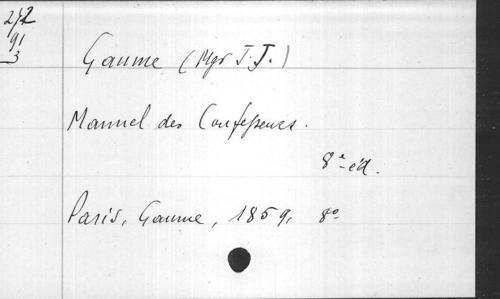 242
91
3
Gaume (Mgr J. J.)
Manuel des Confesseurs.
8ᵉ éd.
Paris, Gaume, 1859, 8º